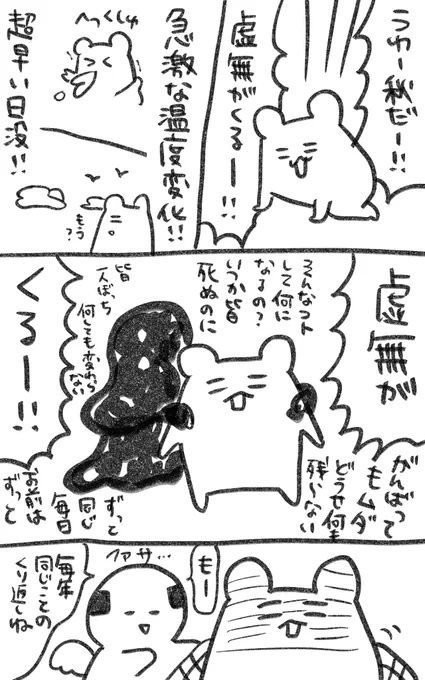 うわー秋だー!!
虚無がくるー!!
急激な温度変化!!
へっくしゅ
超早い日没!!
もう?
虚無が
くるー!!
そんなコト
して何に
なるの?
いつか皆
死ぬのに
皆
一人ぼっち
何しても変わら
ない
がんばって
もムダ
どうせ何も
残らない
ずっと
同じ
毎日
お前は
ずっと
もー
ファサ…
毎年
同じことの
くり返しね